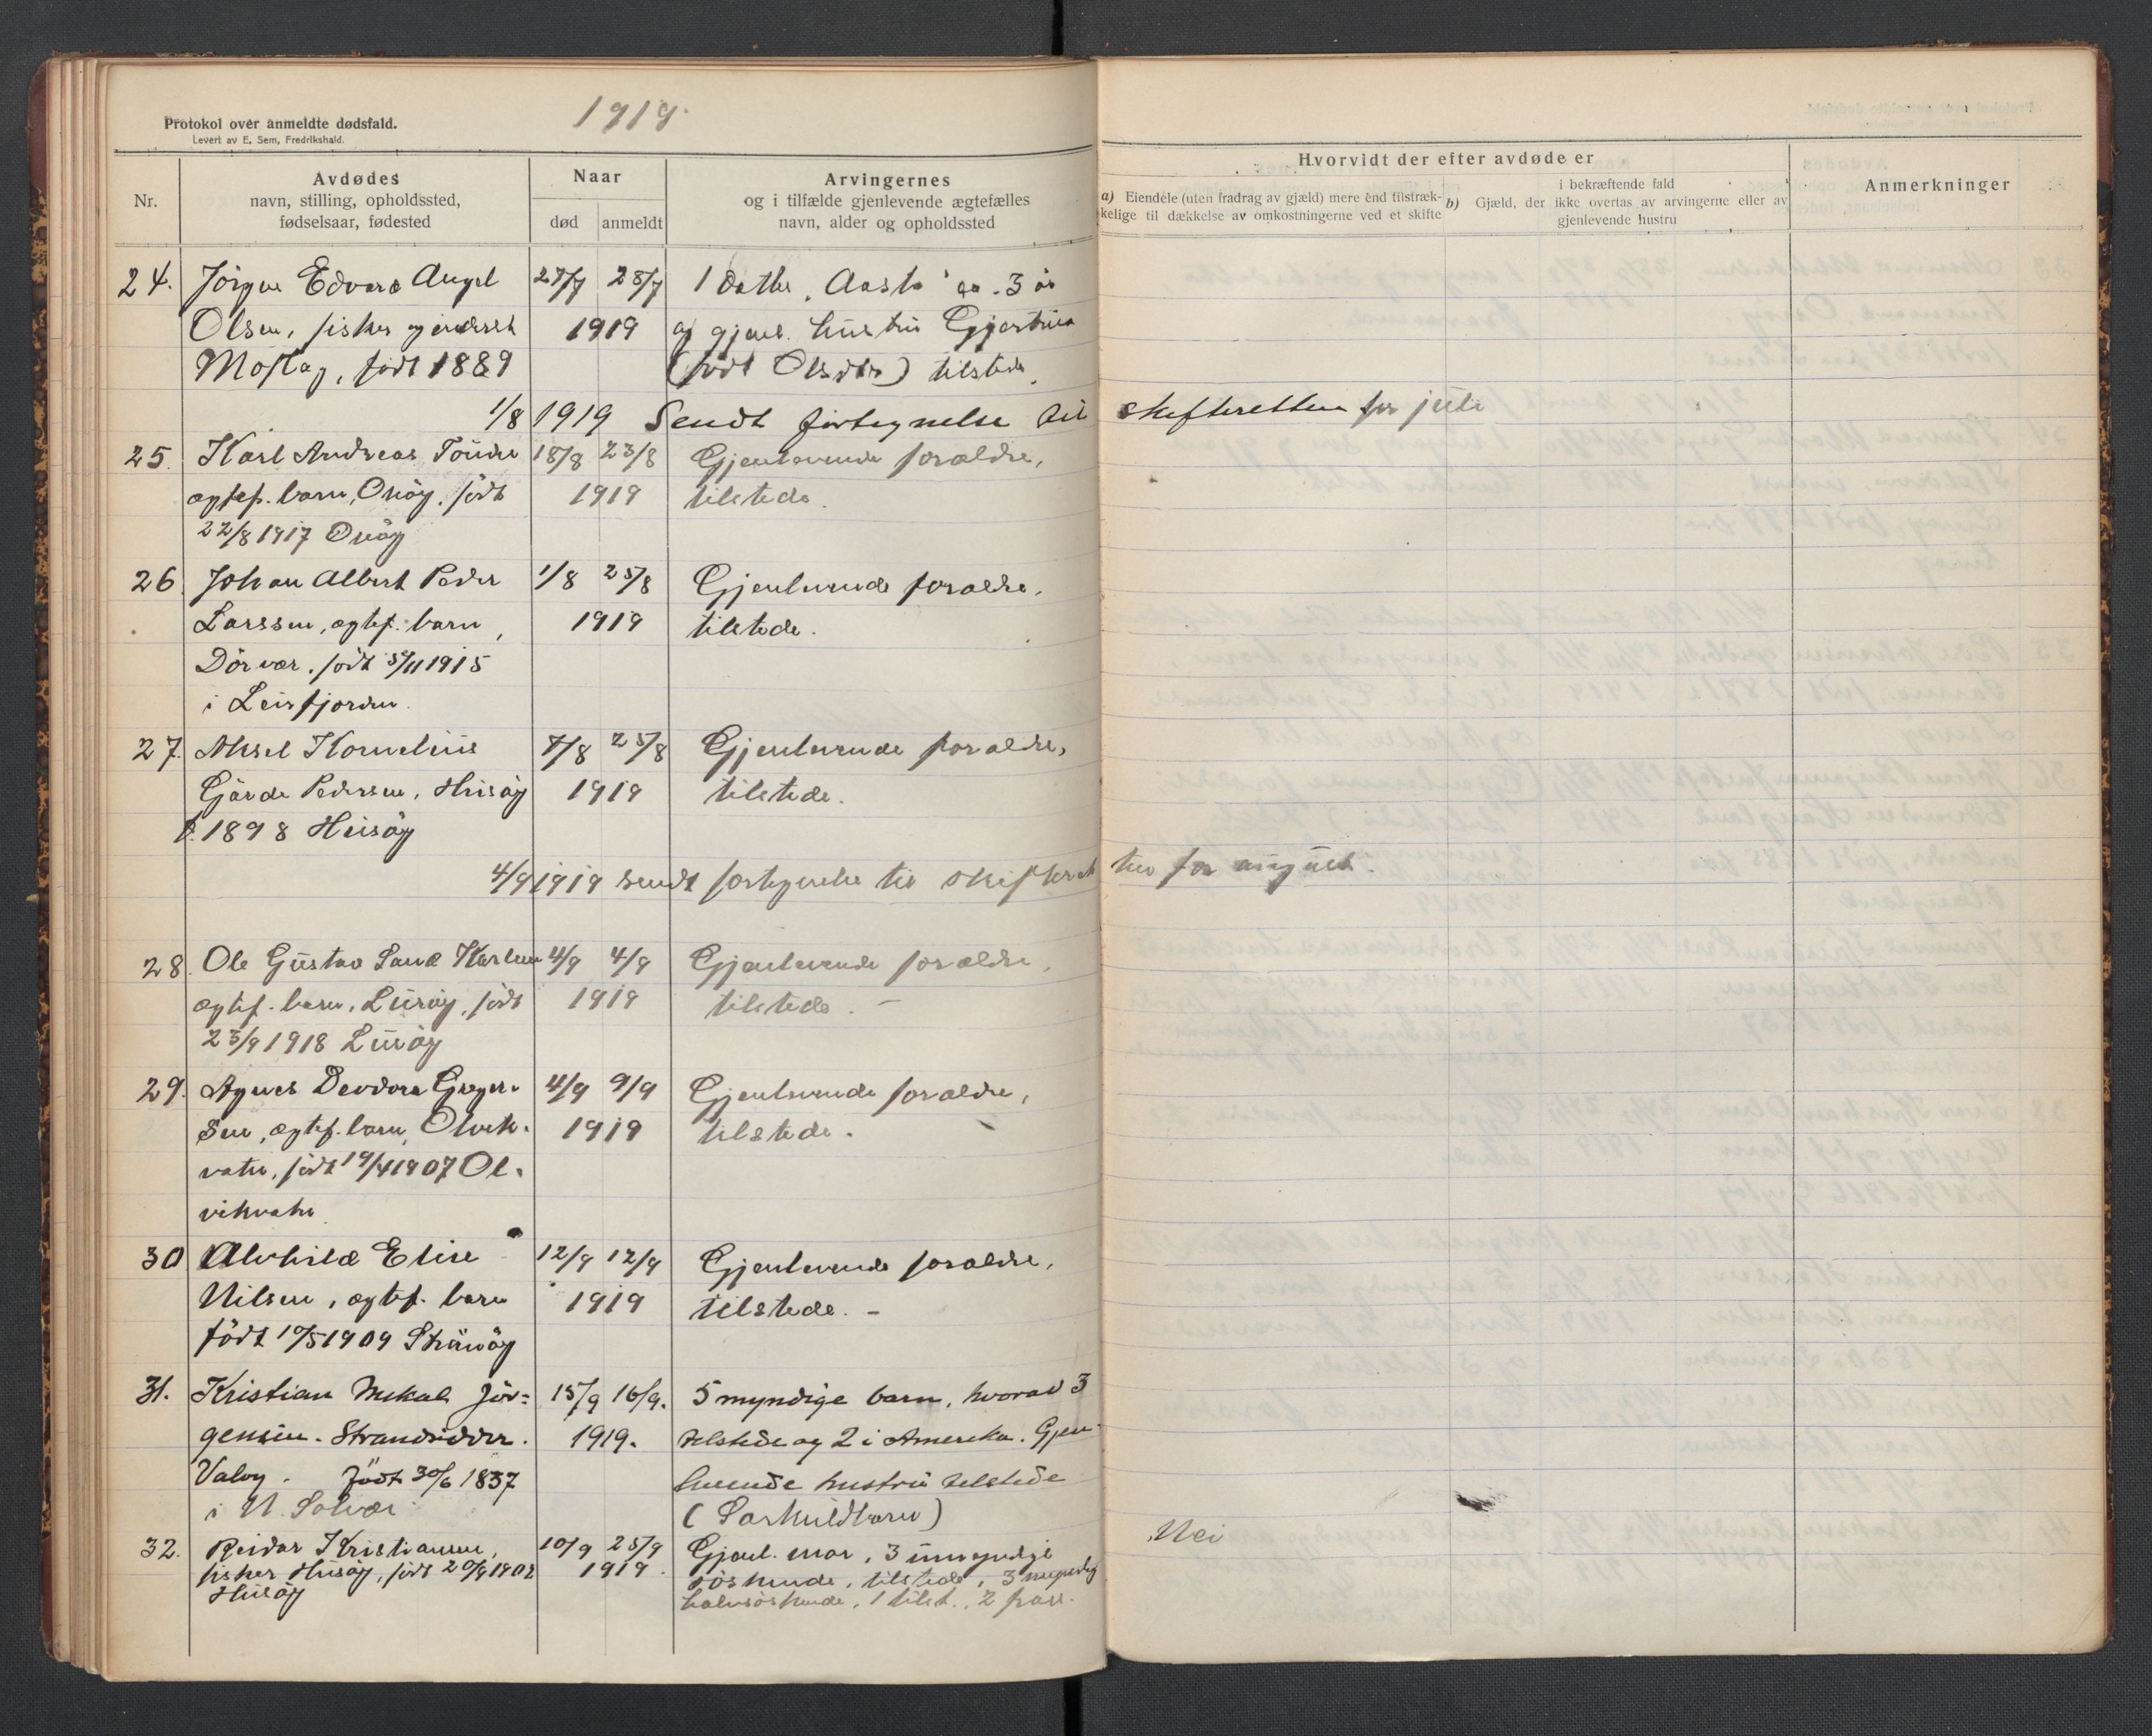 1919.
Protokol over anmeldte dødsfald.
Levert av E. Sem, Fredrikshald.
Nr.
Avdødes
navn, stilling, opholdssted,
fødselsaar, fødested
Naar
død
anmeldt
Arvingernes
og i tilfælde gjenlevende ægtefælles
navn, alder og opholdssted
Hvorvidt der efter avdøde er
a) Eiendele (uten fradrag av gjæld) mere end tilstræk-
kelige til dækkelse av omkostningerne ved et skifte
i bekræftende fald
b) Gjæld, der ikke overtas av arvingerne eller av
gjenlevende hustru
Anmerkninger
24. Jörgen Edvard Angel 27/7 28/7 1 datter, Aasta ca. 3 år
Olsen, fisker 1919 og gjenl. hustru
født 1889 (født Olsdtr) tilstede.
1/8 1919 Sendt fortegnelse til skifteretten for juli
25. Karl Andreas Tönder 18/8 23/8 Gjenlevende forældre,
ægtef. barn, Onöy, født 1919 tilstede.
22/8 1917 Onöy
26. Johan Albert Peder 1/8 25/8 Gjenlevende forældre,
Larssen, ægtef. barn, 1919 tilstede.
Dörvær, født 5/11 1915
i Leirfjorden.
27. Aksel Kornelius 7/8 25/8 Gjenlevende forældre,
Gärde Pedersen, Husöy 1919 tilstede.
f. 1898 Husöy
4/9 1919 sendt fortegnelse til skifteretten for august.
28. Ole Gustav Sand Karlsen 4/9 4/9 Gjenlevende forældre,
ægtef. barn, Luröy, født 1919 tilstede. -
23/9 1918 Luröy
29. Agnes Deodora Greger- 4/9 9/9 Gjenlevende forældre,
sen, ægtef. barn, Olvik- 1919 tilstede.
vatn, født 19/4 1907 Ol-
vikvatn
30 Alvhild Elise 12/9 12/9 Gjenlevende forældre,
Nilsen, ægtef. barn 1919 tilstede. -
født 10/5 1909
31. Kristian Mekal Jör- 15/9 16/9. 5 myndige barn, hvorav 3
gensen. Strandsidder. 1919. telstede og 2 i Amereka. Gjen-
Valøy. Født 30/6 1837 levende hustru telstede
i N. Solvær (Særkuldbarn)
32. Reidar Kristiansen, 10/9 25/9 Gjenl. mor, 3 umyndige Nei
fisker Husöy, født 20/9 1902 1919. söskende, tilstede, 3 myndig
Husöy halvsöskende, 1 tilst., 2